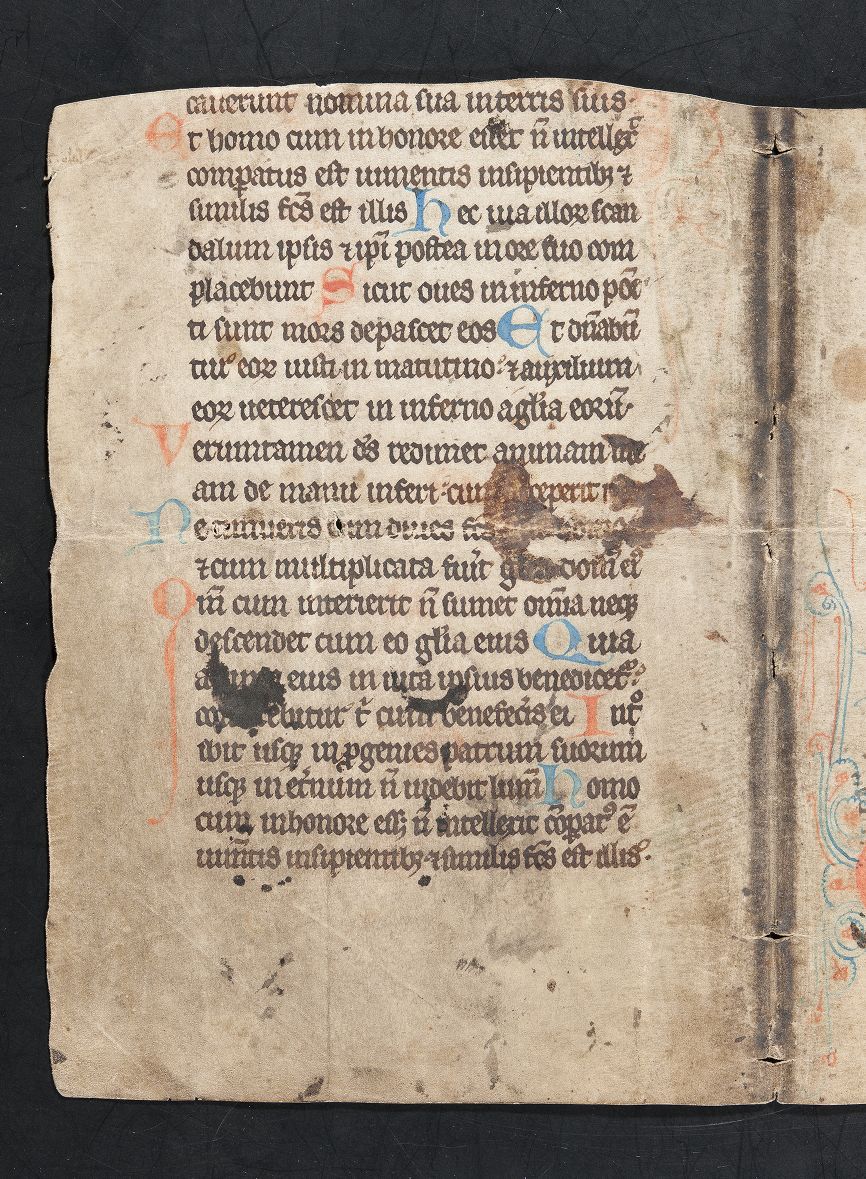 cauerunt nomina sua in terris suis.
Et homo cum in honore eēt n̄ intellexͭ
compatus est iumentis insipientibꝫ ⁊
similis fcs̄ est illis Hec uia illoꝝ scan
dalum ipsis ⁊ ip̄i postea in ore suo com
placebunt Sicut oues in inferno pōi
ti sunt mors depascet eos Et dn̄abū
tur eoꝝ iusti in matutino ⁊ auxilium
eoꝝ ueterescet in inferno a gl̄ia eorū.
Verumtamen ds̄ redimet animam me
am de manu inferi cum acceperit
Ne timueris cum diues fcs̄
⁊ cum multiplicata fuīt domꝰ eiꝰ
Qm̄ cum interierit n̄ sumet om̄ia neqꝫ
descendet cum eo gl̄ia eius Quia
anima eius in uita ipsius benedicetͬ
bitur t̄ cum benefecīs ei Intͦ
ibit usqꝫ in ꝓgenies patrum suorum
usqꝫ in et̄num n̄ uidebit lum̄ Homo
cum in honore essꝫ n̄ intellexit cōpatꝰ ē
iumn̄tis insipientibꝫ ⁊ similis fcs̄ est illis.